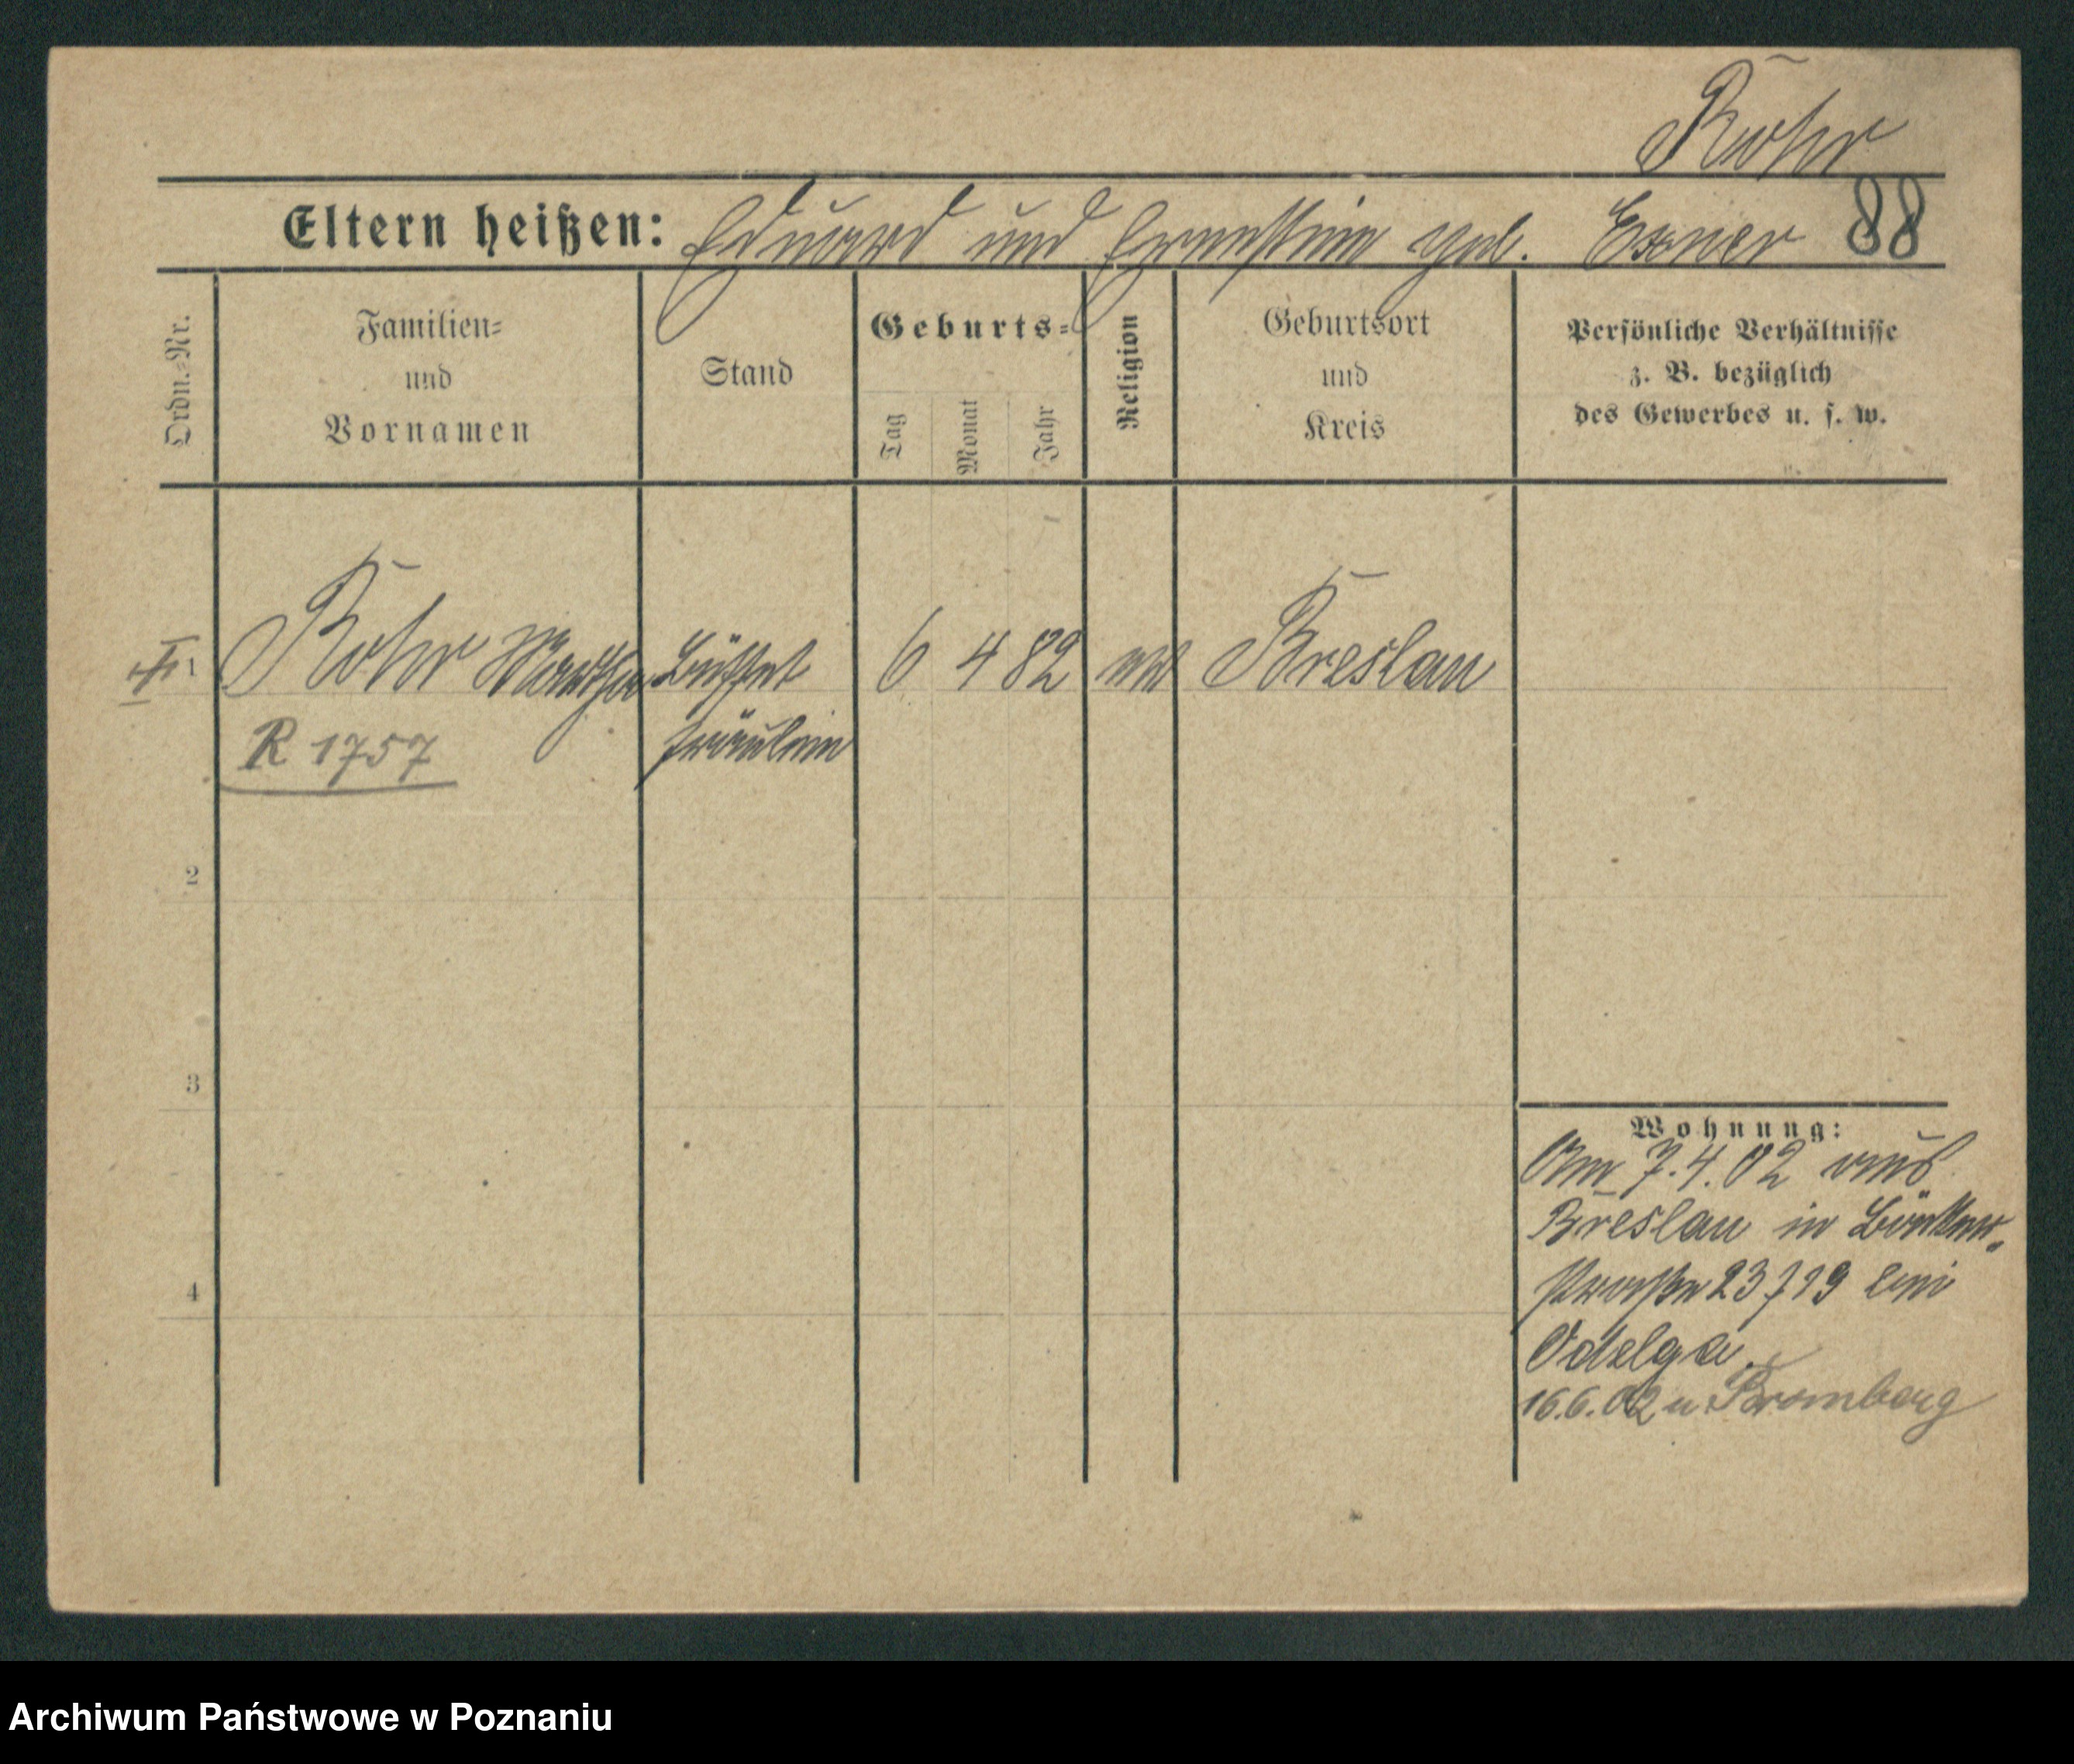 Rohr
Eltern heißen: Eduard und Ernestine geb. Exner 88
Ordn.-Nr.
Familien-
und
Vornamen
Stand
Geburts-
Tag
Monat
Jahr
Religion
Geburtsort
und
Kreis
Persönliche Verhältnisse
z. B. bezüglich
des Gewerbes u. s. w.
1 Rohr Martha Büffet 6 4 82 Breslau
fräulein
R 1757
2
3
4
Wohnung:
Am 7.4.02 aus
Breslau in
straße 23 bei
16.6.02 n Bromberg
Archiwum Państwowe w Poznaniu